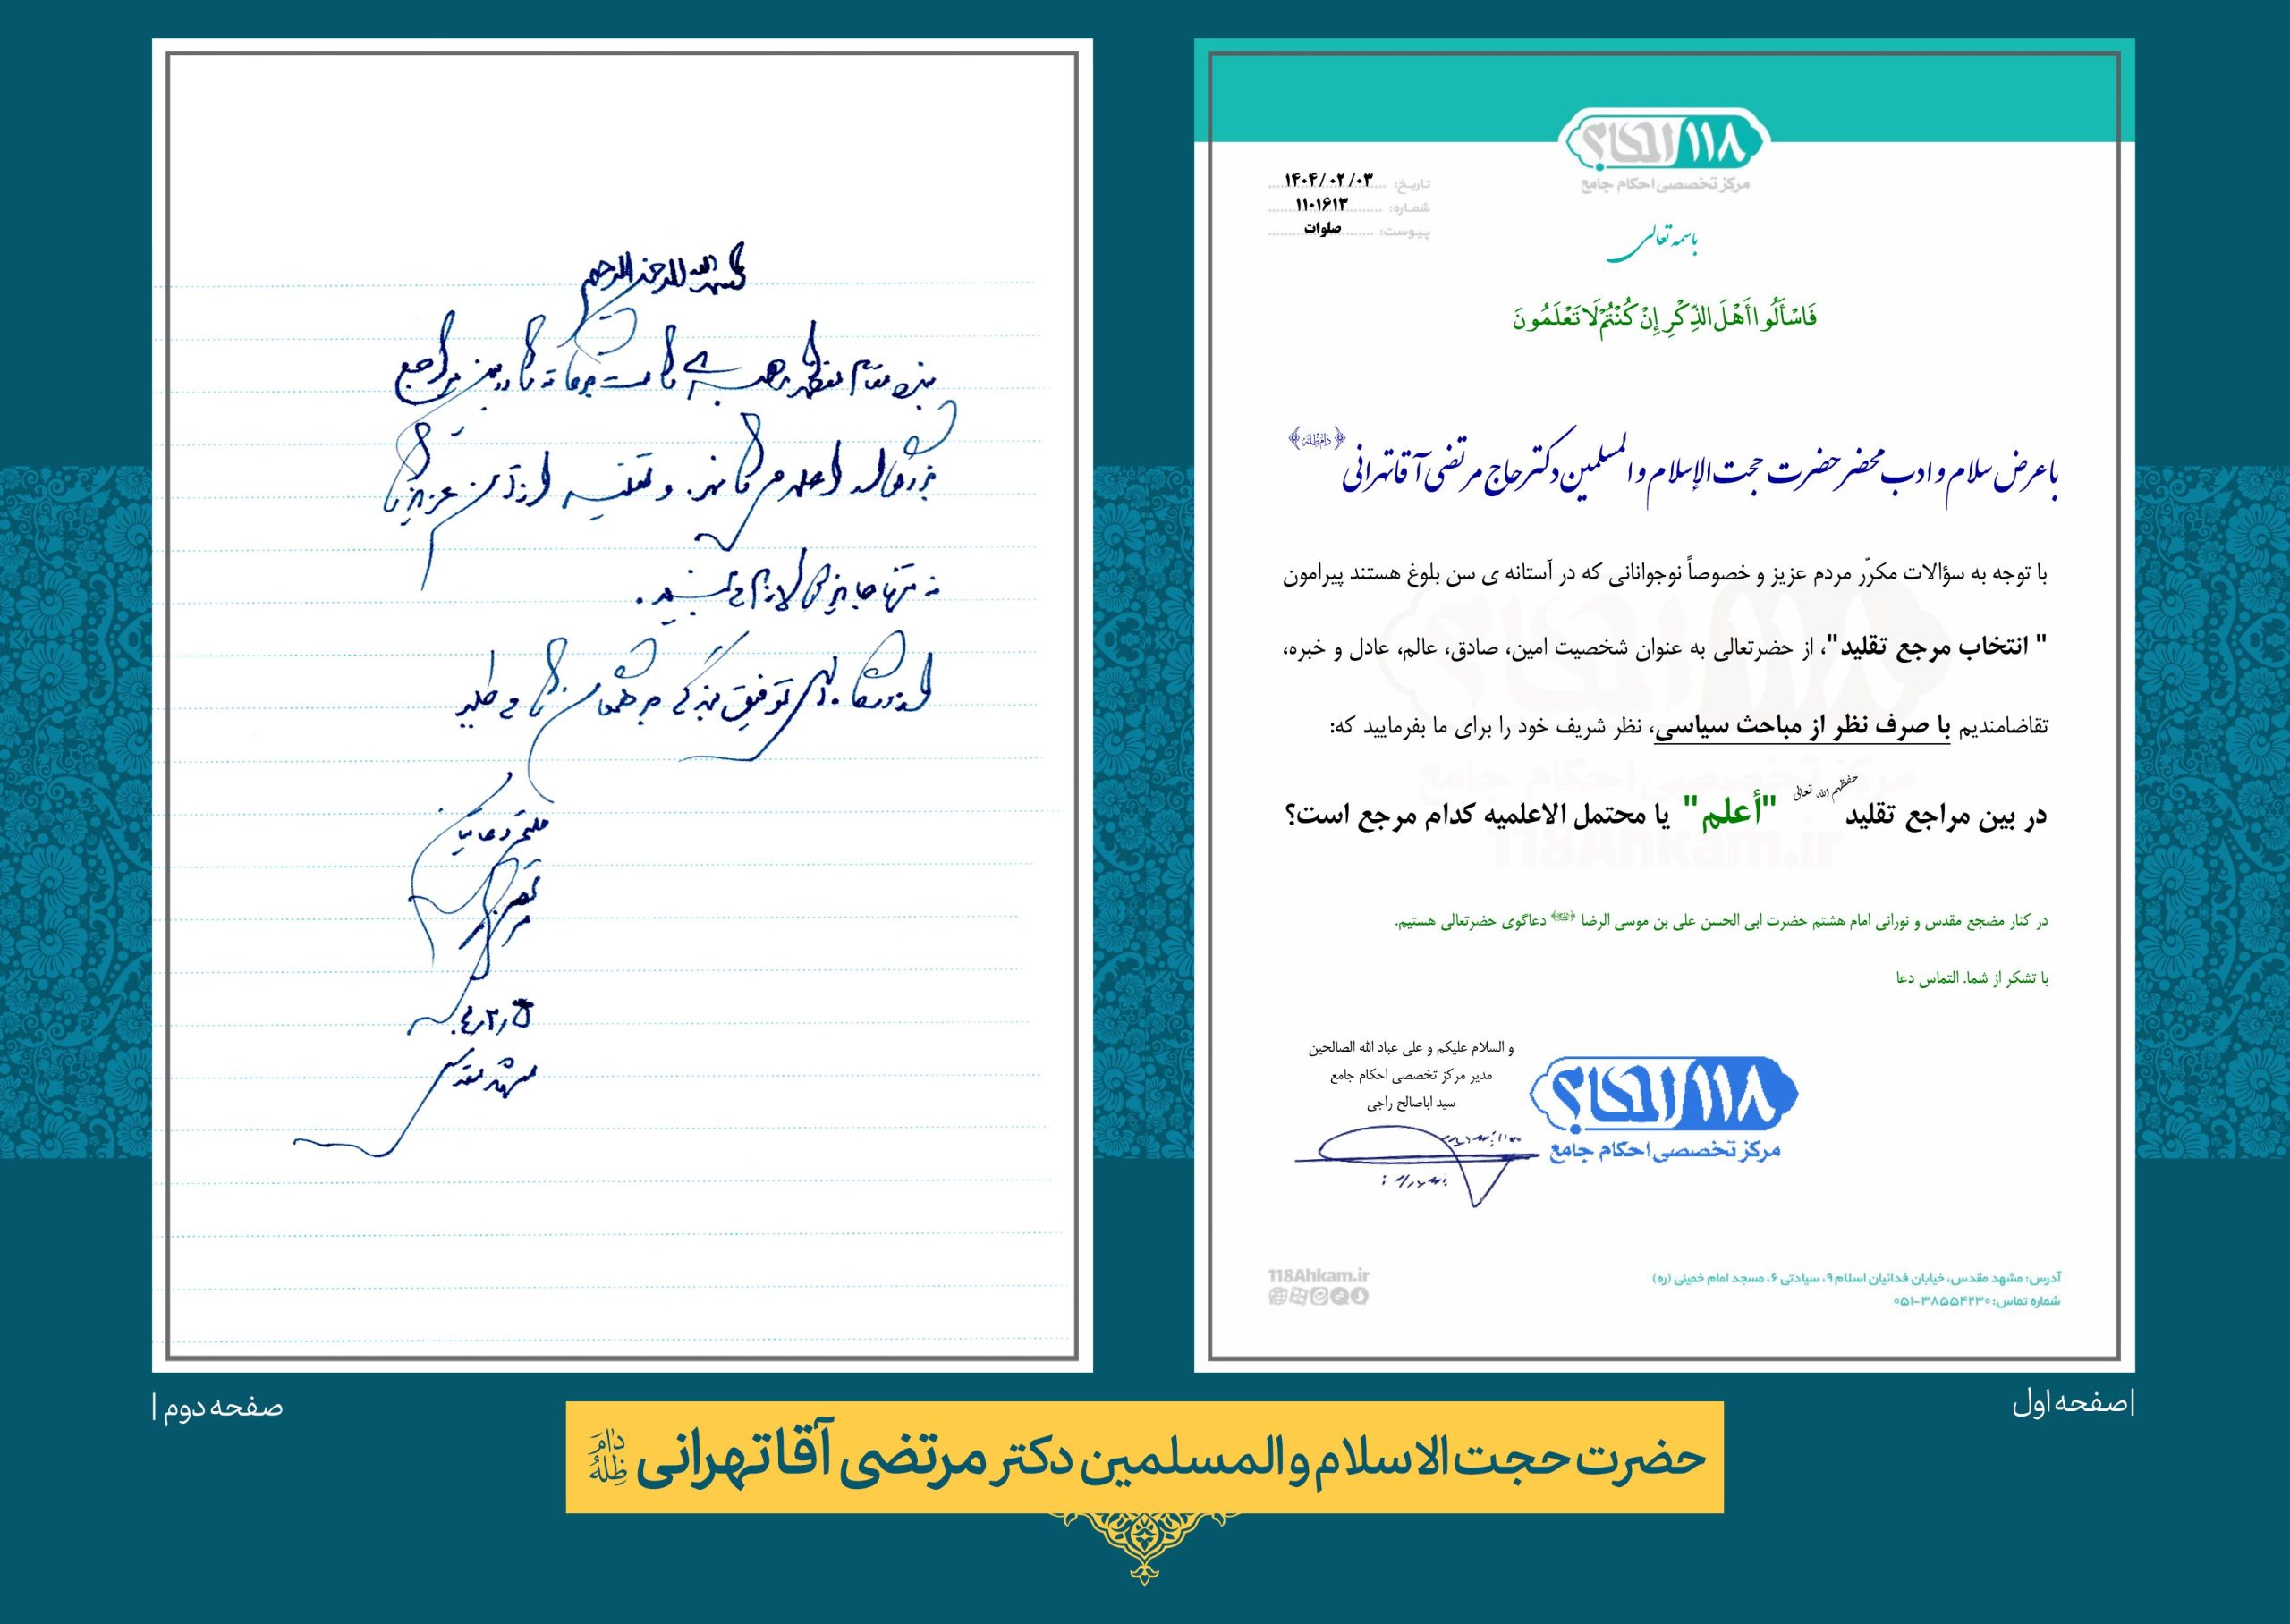 ۱۱۸ احکام
مرکز تخصصی احکام جامع
تاریخ: ۱۴۰۴/۰۲/۰۳
شماره: ۱۱۰۱۶۱۳
پیوست: صلوات
باسمه تعالی
فَاسْأَلُوا أَهْلَ الذِّكْرِ إِنْ كُنْتُمْ لَا تَعْلَمُونَ
با عرض سلام و ادب محضر حضرت حجت الإسلام و المسلمین دکتر حاج مرتضی آقاتهرانی ﴿دامَ ظِلُّهُ﴾
با توجه به سؤالات مکرّر مردم عزیز و خصوصاً نوجوانانی که در آستانه ی سن بلوغ هستند پیرامون
" انتخاب مرجع تقلید"، از حضرتعالی به عنوان شخصیت امین، صادق، عالم، عادل و خبره،
تقاضامندیم با صرف نظر از مباحث سیاسی، نظر شریف خود را برای ما بفرمایید که:
در بین مراجع تقلید حفظهم الله تعالی "أعلم" یا محتمل الاعلمیه کدام مرجع است؟
در کنار مضجع مقدس و نورانی امام هشتم حضرت ابی الحسن علی بن موسی الرضا دعاگوی حضرتعالی هستیم.
با تشکر از شما. التماس دعا
و السلام علیکم و علی عباد الله الصالحین
مدیر مرکز تخصصی احکام جامع
سید اباصالح راجی
۱۱۸ احکام
مرکز تخصصی احکام جامع
آدرس: مشهد مقدس، خیابان فدائیان اسلام ۹، سیادتی ۶، مسجد امام خمینی (ره)
شماره تماس: ۳۸۵۵۴۲۳۰-۰۵۱
118Ahkam.ir
صفحه اول
بسم الله الرحمن الرحیم
بنده مقام معظم رهبری را در بین مراجع
بزرگوار اعلم می دانم. و تقلید از آن عزیز را
نه تنها جایز که لازم می
از خدا توفیق بندگی می طلبم
ملتمس دعا
مرتضی
۴٫۲٫۵
مشهد مقدس
صفحه دوم
حضرت حجت الاسلام والمسلمین دکتر مرتضی آقاتهرانی دامَ ظِلُّهُ